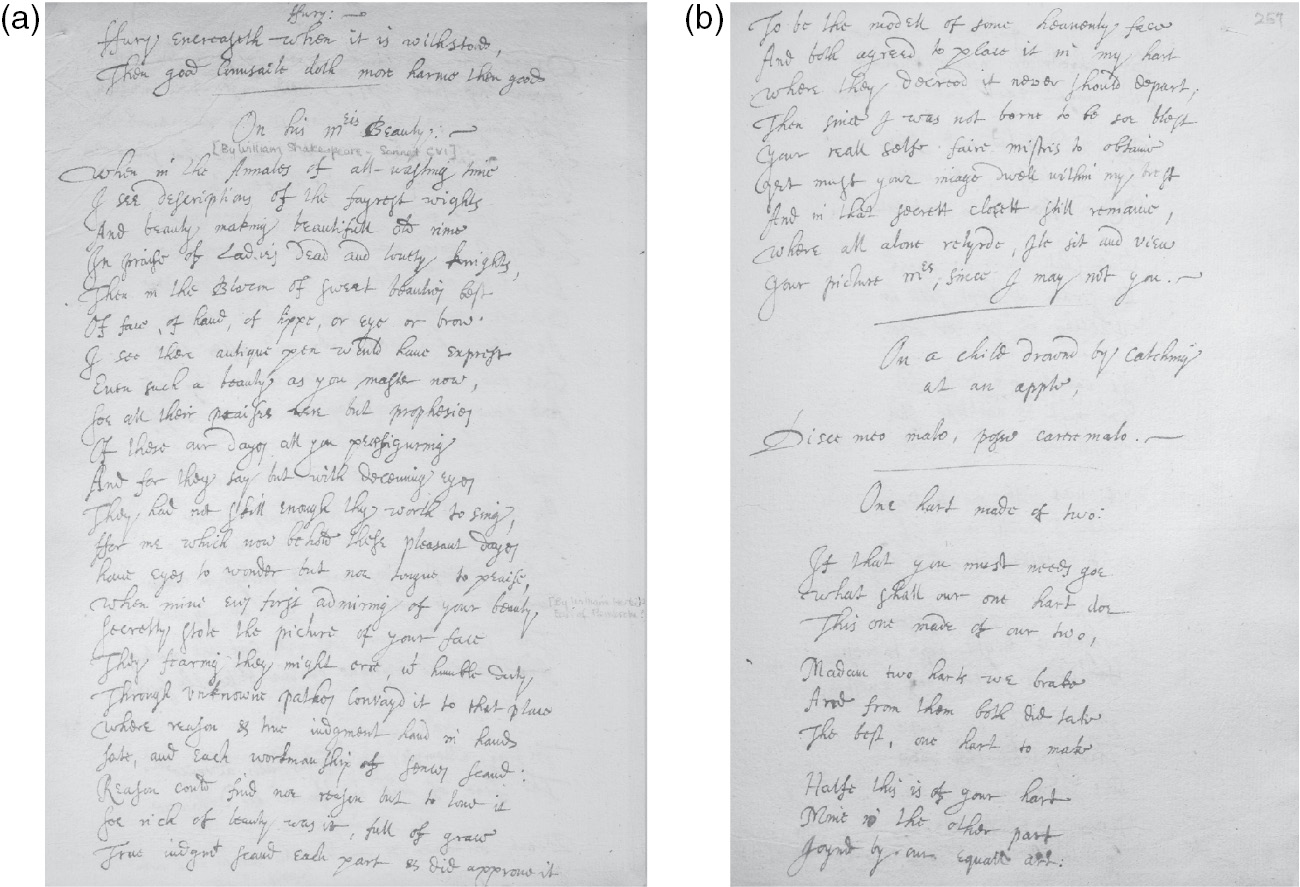 (a)
ffury:—
ffury encreaseth when it is withstood,
Then good Counsaile doth more harme then good
On his m^ris Beauty:—
[By William Shakespeare - Sonnet CVI]
When in the Annales of all-wasting time
I see descriptions of the fayrest wights
And beauty making beautifull old rime
In praise of Ladies dead and lovely knights,
Then in the Blazon of sweet beauties best
Of face, of hand, of lippe, or eye or brow.
I see there antique pen would have exprest
Even such a beauty as you master now,
soe all their praises were but prophesies
Of these our dayes all you prefiguring
And for they say but with deceiving eyes
They had not skill enough thy worth to sing,
ffor me which now behold these pleasant dayes
have eyes to wonder but noe tongue to praise,
When mine eies first admiring of your beauty,
Secretly stole the picture of your face
They fearing they might erre, w^t humble duty
Through unknowne pathes convayd it to that place
Where reason & true iudgment hand in hand
sate, and each workmanship of sences scand:
Reason could find noe reason but to love it
soe rich of beauty was it, full of grace
True iudgmt scand each part & did approve it
(b)
257
To be the modell of some heavenly face
And both agreed to place it in my hart
Where they decreed it never should depart,
Then since I was not borne to be soe blest
Your reall selfe faire mistris to obtaine
yet must your image dwell within my brest
And in that secrett closett still remaine,
Where all alone retyrde, Ile sit and view
Your picture m^ris, since I may not you.—
On a child drownd by catching
at an apple,
Disce meo malo, posse carere malo.—
One hart made of two:
If that you must needs goe
what shall our one hart doe
This one made of our two,
Madam two harts we brake
And from them both did take
The best, one hart to make
Halfe this is of your hart
Mine is the other part
Joynd by our equall art: